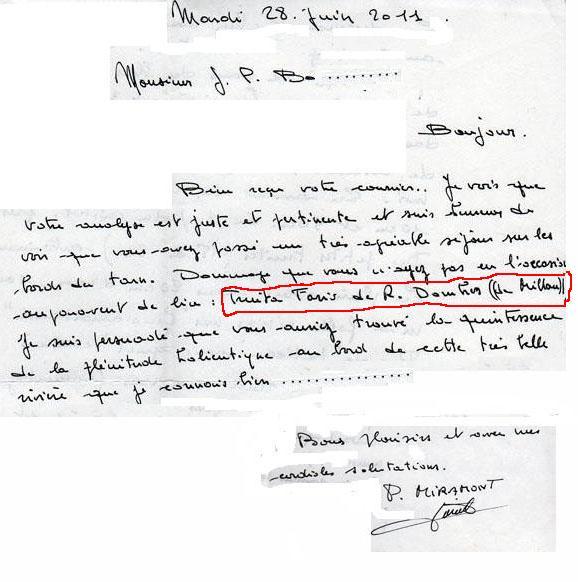 Mardi 28. Juin 2011
Monsieur J. P. Bo ..........
Bonjour.
Bien reçu votre courrier.. Je vois que
votre analyse est juste et pertinente et suis heureux de
voir que vous avez passé un très agréable séjour sur les
bords du Tarn. Dommage que vous n'ayez pas eu l'occasion
auparavent de lire : Truita Fario de R. (de Millau)
Je suis persuadé que vous auriez trouvé la quintessence
de la plénitude halieutique au bord de cette très belle
rivière que je connais bien ...............
Bons plaisirs et avec mes
cordiales salutations.
P. MIRAMONT